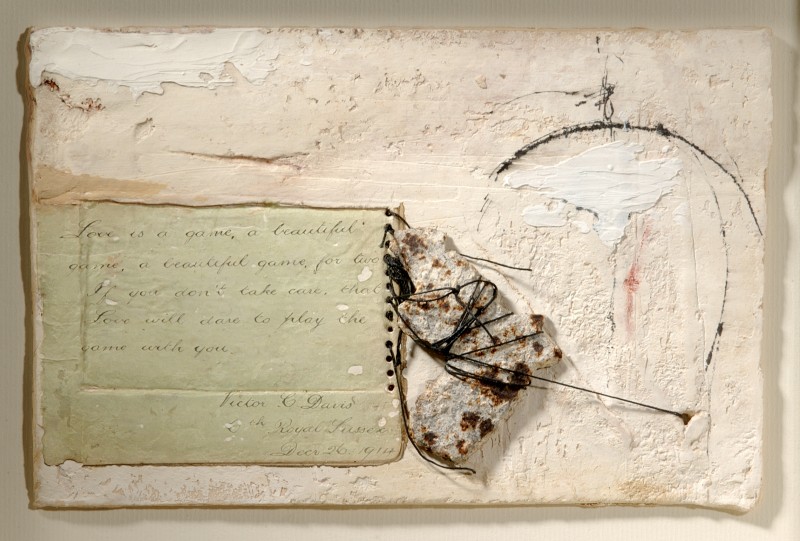 Love is a game, a beautiful
game, a beautiful game, for two
If you don't take care, that
Love will dare to play the
game with you.
Victor C Davis
6th Royal Sussex
Decr 26, 1914